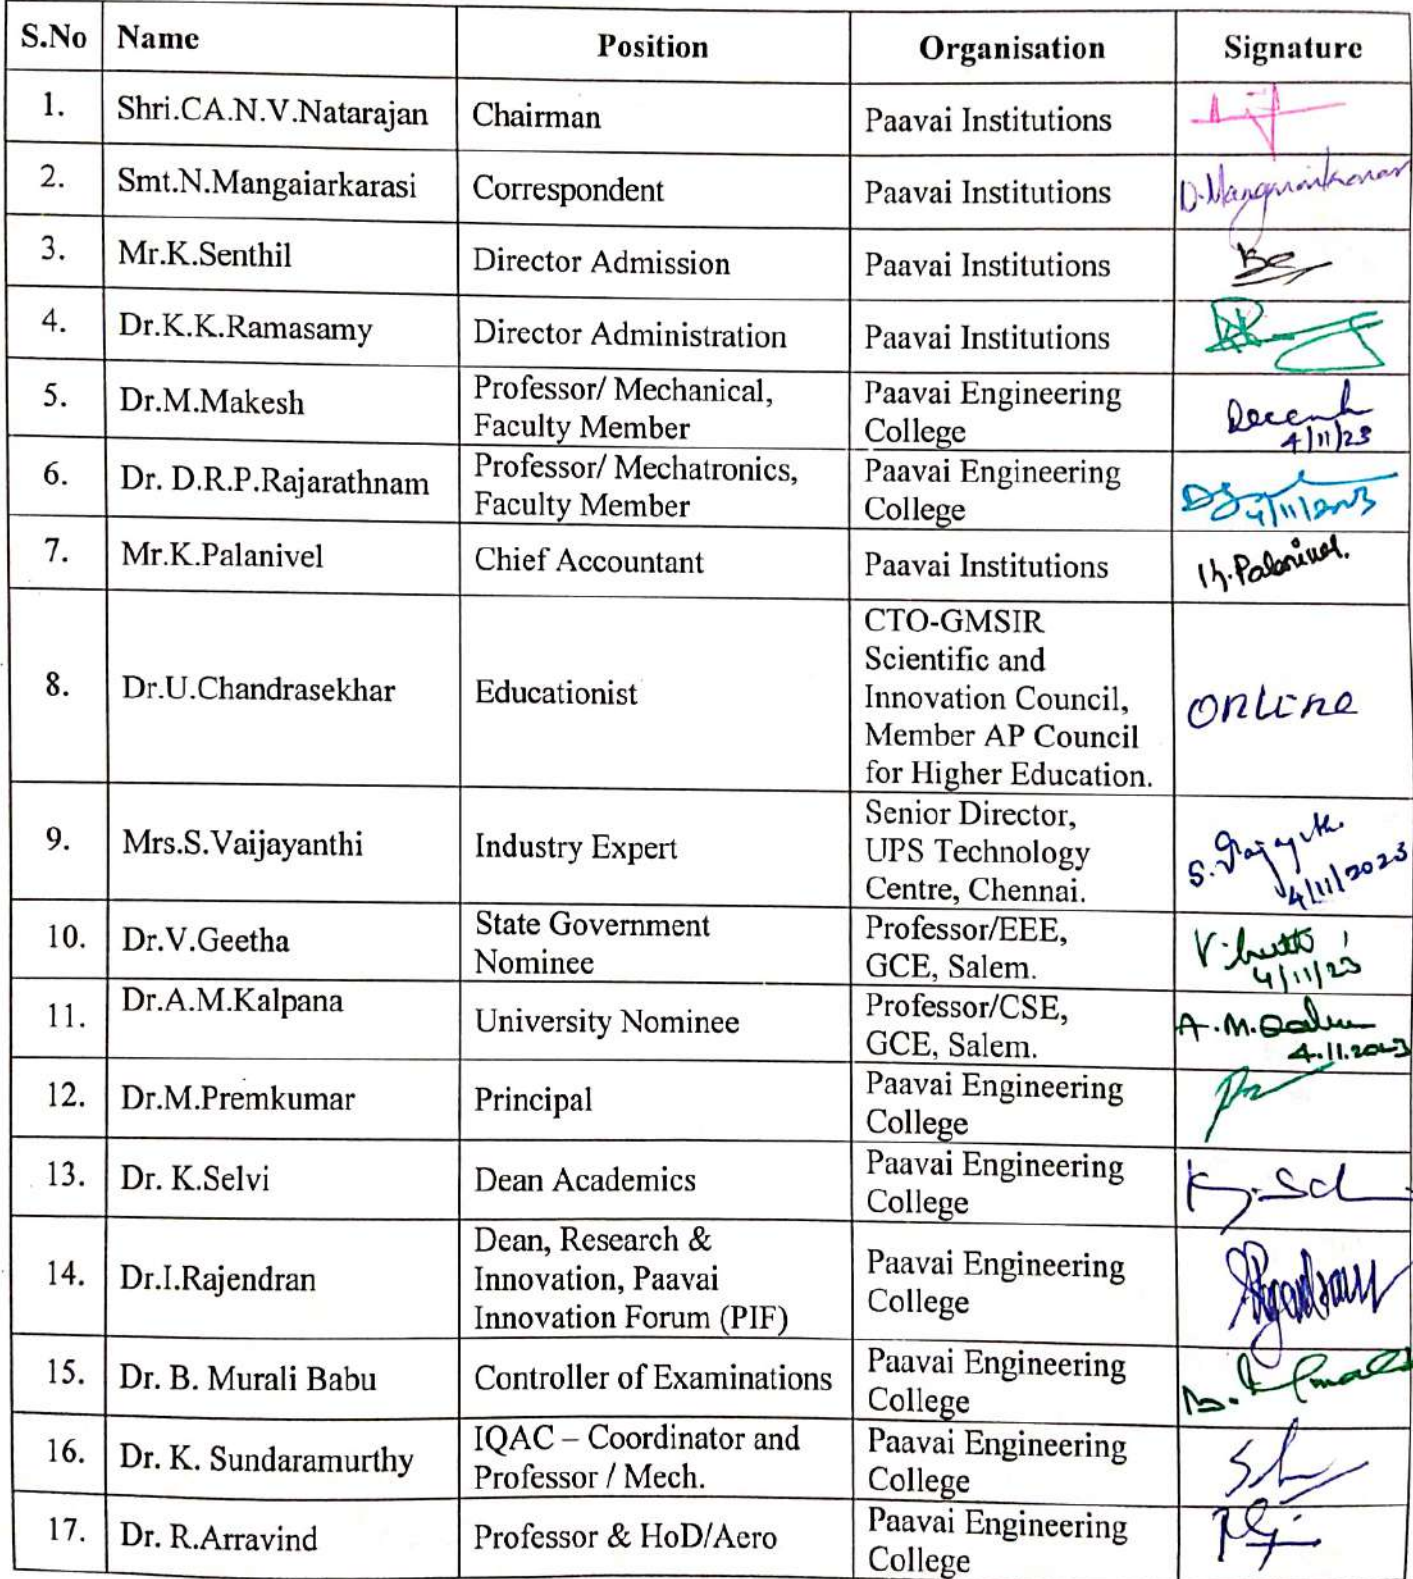 S.No Name Position Organisation Signature
1. Shri.CA.N.V.Natarajan Chairman Paavai Institutions
2. Smt.N.Mangaiarkarasi Correspondent Paavai Institutions
3. Mr.K.Senthil Director Admission Paavai Institutions
4. Dr.K.K.Ramasamy Director Administration Paavai Institutions
5. Dr.M.Makesh Professor/ Mechanical,
Faculty Member
Paavai Engineering
College
4/11/23
6. Dr. D.R.P.Rajarathnam Professor/ Mechatronics,
Faculty Member
Paavai Engineering
College
4/11/2023
7. Mr.K.Palanivel Chief Accountant Paavai Institutions K.Palanivel.
8. Dr.U.Chandrasekhar Educationist
CTO-GMSIR
Scientific and
Innovation Council,
Member AP Council
for Higher Education.
Online
9. Mrs.S.Vaijayanthi Industry Expert
Senior Director,
UPS Technology
Centre, Chennai.
4/11/2023
10. Dr.V.Geetha State Government
Nominee
Professor/EEE,
GCE, Salem.
4/11/23
11. Dr.A.M.Kalpana University Nominee
Professor/CSE,
GCE, Salem.
4.11.2023
12. Dr.M.Premkumar Principal
Paavai Engineering
College
13. Dr. K.Selvi Dean Academics
Paavai Engineering
College
14. Dr.I.Rajendran
Dean, Research &
Innovation, Paavai
Innovation Forum (PIF)
Paavai Engineering
College
15. Dr. B. Murali Babu Controller of Examinations
Paavai Engineering
College
16. Dr. K. Sundaramurthy
IQAC – Coordinator and
Professor / Mech.
Paavai Engineering
College
17. Dr. R.Arravind Professor & HoD/Aero
Paavai Engineering
College